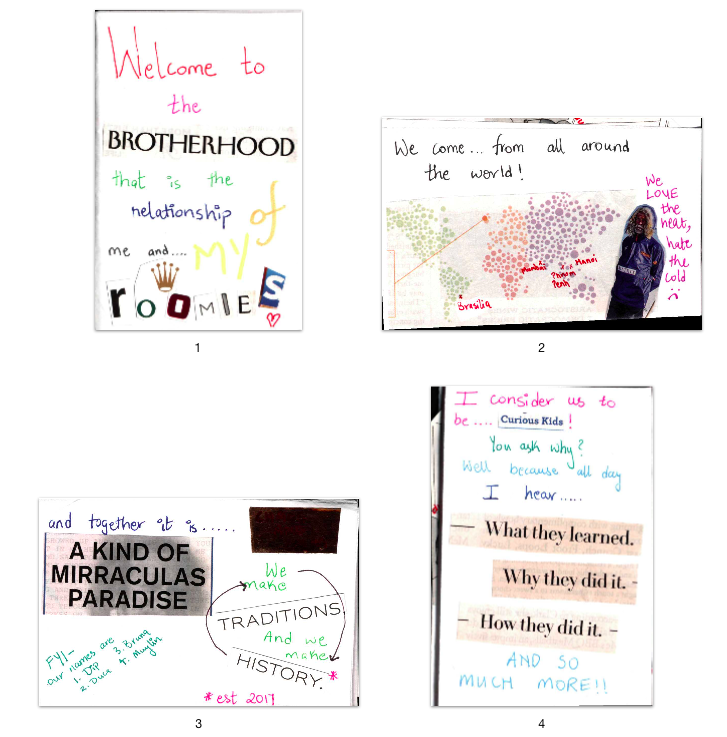 Welcome to
the
BROTHERHOOD
that is the
relationship of
me and.... MY
rOOMIES
1
We come... from all around
the world!
We
LOVE
the
heat,
hate
the
cold
Mumbai
Hanoi
Phnom
Penh
Brasilia
2
and together it is.....
A KIND OF
MIRRACULAS
PARADISE
We
make
TRADITIONS
And we
make
HISTORY.*
*est 2017
FYI-
our names are
1. Dip 3. Bruna
2. Duck 4. Muylin
3
I consider us to
be.... Curious Kids!
You ask why?
Well because all day
I hear.....
— What they learned.
Why they did it. -
— How they did it. —
AND SO
MUCH MORE!!
4